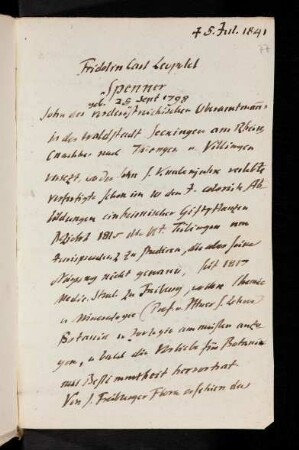 † 5. Jul. 1841
Fridolin Carl Leopold
Spenner
geb. 25 Sept 1798
Sohn des vorderöstreichischen Oberamtmann
in der Waldstadt Seckingen am Rhein,
nachher nach Thiengen u. Villingen
versezt, wo der Sohn s. Knabenjahre verlebte
verfertigte schon im
bildungen einheimischer Giftpflanzen
Bezieht 1815 Tübingen um
zu studiren, die aber seine
Neigung nicht gewann. Seit 1817
Medic. Stud. zu Freiburg, wo ihn Chemie
u Mineralogie (Prof. s. Lehrer
Botanik u Zoologie am meisten anzo
gen, u bald die Vorliebe für Botanik
mit Bestimmtheit hervortrat
Von s. Freiburger Flora erschien der